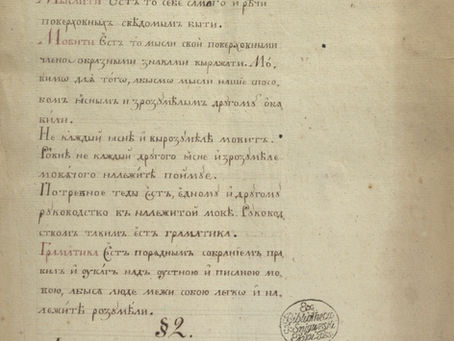 Мыслити Єстъ то себе самаго и рѣчи
поверховныхъ свѣдомым быти.
Мовити Єстъ то мысли свои поверховными
членообразными знаками выражати. Мо-
вимѡ для тогѡ, абысмѡ мысли наше спосо-
бомъ яснымъ и зрозумѣлымъ другому ѡка-
зили.
Не каждый яснѣ и вырозумѣле мовитъ.
Ровнѣ не каждый другого яснѣ и зрозумѣле
мовѧчого належитѣ поймує.
Потребное теды Єстъ, єдному и другому
руководство къ належитой мовѣ. Руковод
ствомъ такимъ єстъ граматика.
Граматика Єстъ порѧднымъ собранїемъ пра-
вилъ и оуказъ надъ оустною и писаною мо-
вою, абысѧ люде межи собою легкѡ и на-
лежитѣ розумѣли.
§ 2.
Ex
Bibliotheca